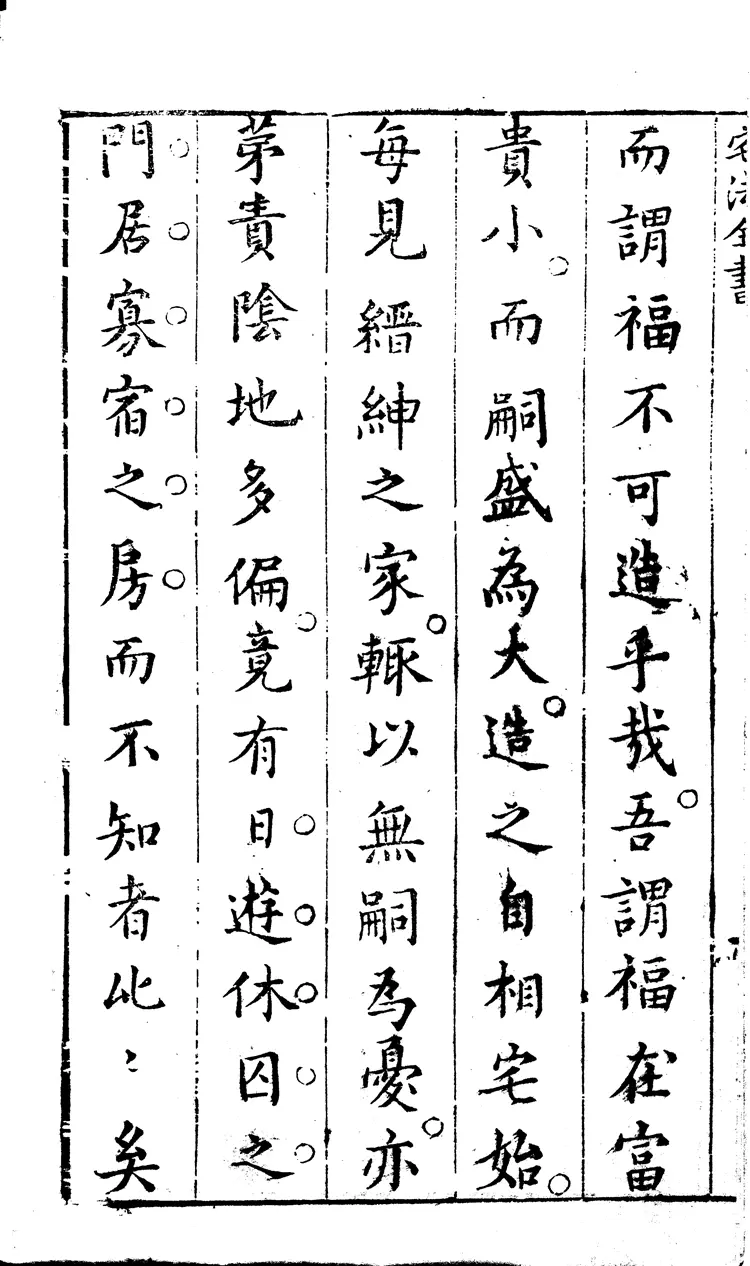 宅法全書
而謂福不可造乎哉吾謂福在富
貴小而嗣盛為大造之自相宅始
每見縉紳之家輙以無嗣為憂亦
苐責陰地多偏竟有日遊休囚之
門居寡宿之房而不知者比〻矣